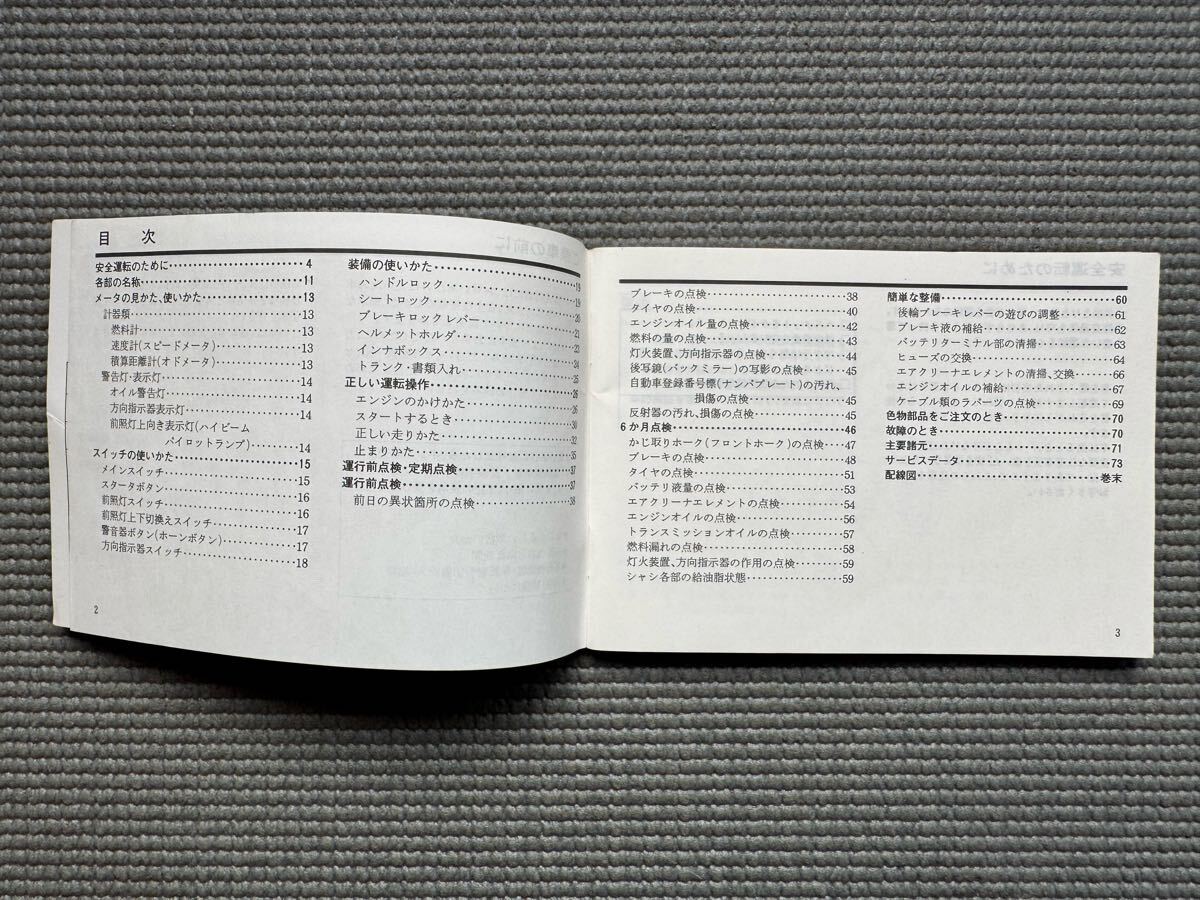 目次
安全運転のために 4
各部の名称 11
メータの見かた、使いかた 13
計器類 13
燃料計 13
速度計(スピードメータ) 13
積算距離計(オドメータ) 13
警告灯・表示灯 14
オイル警告灯 14
方向指示器表示灯 14
前照灯上向き表示灯(ハイビーム
パイロットランプ) 14
スイッチの使いかた 15
メインスイッチ 15
スタータボタン 16
前照灯スイッチ 16
前照灯上下切換えスイッチ 17
警音器ボタン(ホーンボタン) 17
方向指示器スイッチ 18
装備の使いかた 19
ハンドルロック 19
シートロック 19
ブレーキロックレバー 20
ヘルメットホルダ 21
インナボックス 24
トランク・書類入れ 25
正しい運転操作 26
エンジンのかけかた 26
スタートするとき 30
正しい走りかた 32
止まりかた 35
運行前点検・定期点検 37
運行前点検 37
前日の異状箇所の点検 38
2
ブレーキの点検 38
タイヤの点検 40
エンジンオイル量の点検 42
燃料の量の点検 43
灯火装置、方向指示器の点検 44
後写鏡(バックミラー)の写影の点検 45
自動車登録番号標(ナンバプレート)の汚れ、
損傷の点検 45
反射器の汚れ、損傷の点検 45
6か月点検 46
かじ取りホーク(フロントホーク)の点検 47
ブレーキの点検 48
タイヤの点検 51
バッテリ液量の点検 53
エアクリーナエレメントの点検 54
エンジンオイルの点検 56
トランスミッションオイルの点検 57
燃料漏れの点検 58
灯火装置、方向指示器の作用の点検 59
シャシ各部の給油脂状態 59
簡単な整備 60
後輪ブレーキレバーの遊びの調整 61
ブレーキ液の補給 62
バッテリターミナル部の清掃 63
ヒューズの交換 64
エアクリーナエレメントの清掃、交換 66
エンジンオイルの補給 67
ケーブル類のラバーツの点検 69
色物部品をご注文のとき 70
故障のとき 70
主要諸元 71
サービスデータ 73
配線図 巻末
3